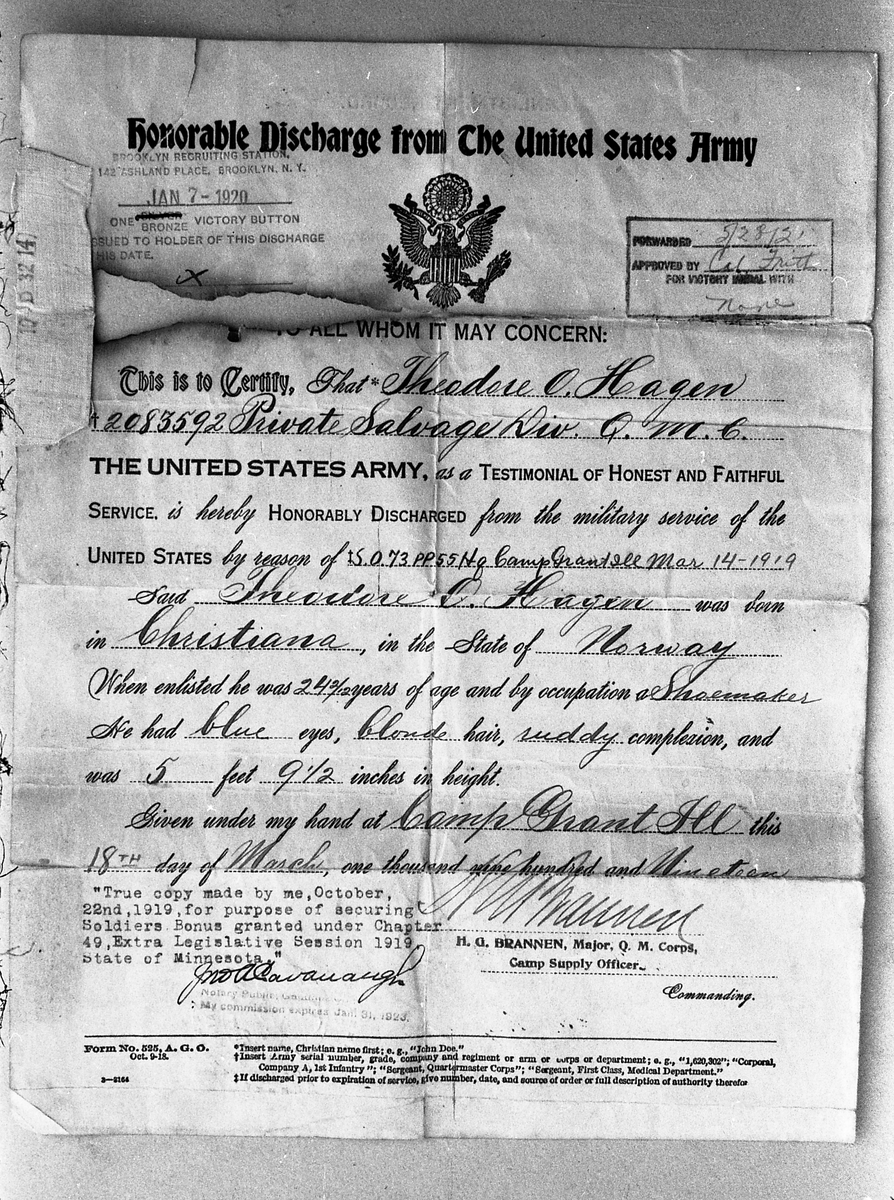 Honorable Discharge from The United States Army
BROOKLYN RECRUITING STATION,
142 ASHLAND PLACE, BROOKLYN, N. Y.
JAN 7 - 1920
ONE SILVER VICTORY BUTTON
BRONZE
SSUED TO HOLDER OF THIS DISCHARGE
HIS DATE.
X
FORWARDED 5/28/21
APPROVED BY
FOR VICTORY MEDAL WITH
TO ALL WHOM IT MAY CONCERN:
This is to Certify, That* Theodore O. Hagen
†2083592 Private Salvage Div. Q. M. C.
THE UNITED STATES ARMY, as a TESTIMONIAL OF HONEST AND FAITHFUL
SERVICE, is hereby HONORABLY DISCHARGED from the military service of the
UNITED STATES by reason of ‡S.O.73 PP55 Hq Camp Grant Ill Mar 14-1919
Said Theodore O. Hagen was born
in Christiana, in the State of Norway
When enlisted he was 24 9/12 years of age and by occupation a Shoemaker
He had blue eyes, blonde hair, ruddy complexion, and
was 5 feet 9 1/2 inches in height.
Given under my hand at Camp Grant Ill this
18TH day of March, one thousand nine hundred and Nineteen
"True copy made by me, October,
22nd, 1919, for purpose of securing
Soldiers Bonus granted under Chapter
49, Extra Legislative Session 1919,
State of Minnesota."
Jno A Cavanaugh
Notary Public,
My commission expires Jan. 31, 1923.
H G Brannen
H. G. BRANNEN, Major, Q. M. Corps,
Camp Supply Officer.
Commanding.
Form No. 525, A. G. O.
Oct. 9-18.
3—3164
*Insert name, Christian name first; e. g., "John Doe."
†Insert Army serial number, grade, company and regiment or arm or corps or department; e. g., "1,620,302"; "Corporal,
Company A, 1st Infantry"; "Sergeant, Quartermaster Corps"; "Sergeant, First Class, Medical Department."
‡If discharged prior to expiration of service, give number, date, and source of order or full description of authority therefor